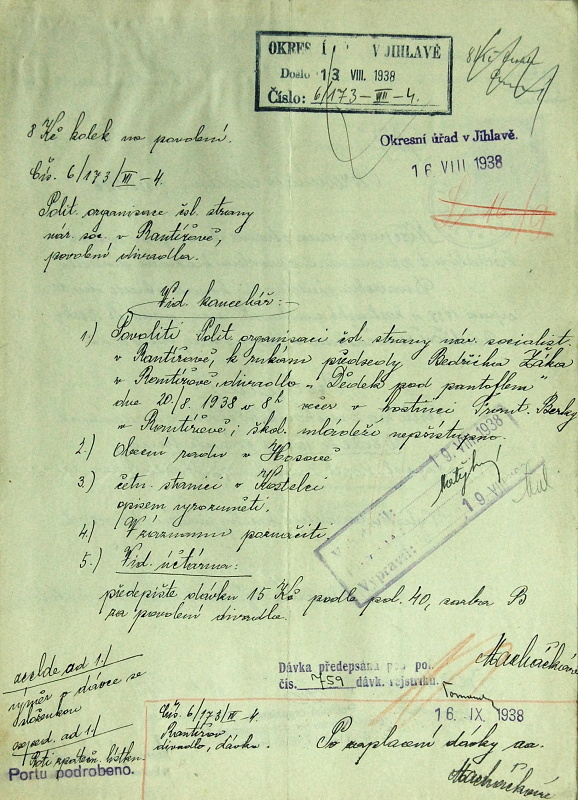 OKRES Í V JIHLAVĚ
Došlo 13 VIII. 1938
Číslo: 6/173-VII-4.
Okresní úřad v Jihlavě.
16 VIII 1938
8 Kč kolek na povolení.
Čís. 6/173/VII-4.
Polit. organisace čsl. strany
nár. soc. v Rantířově,
povolení divadla.
Vid. kancelář:
1.) Povoliti Polit. organisaci čsl. strany nár. socialist.
v Rantířově, k rukám předsedy Bedřicha Žáka
v Rantířově, divadlo "Dědek pod pantoflem"
dne 20/8. 1938 v 8h večer v hostinci Frant. Berky
v Rantířově; škol. mládeži nepřístupno.
2.) Obecní radu v Hosově
3.) četn. stanici v Kostelci
opisem vyrozuměti.
4.) V záznamu poznačiti.
5.) Vid. účtárna:
předepište dávku 15 Kč podle pol. 40, sazba B
za povolení divadla.
19 VIII 1938
19 VIII
Vypravil:
Machačková
Dávka předepsána pod pol.
čís. 759 dávk. rejstříku.
16. IX. 1938
ad 1./
výměr o dávce se
složenkou
ad. 1./
Proti zpáteč. lístku.
Portu podrobeno.
Čís. 6/173/VII-4.
Rantířov
divadlo, dávka.
Po zaplacení dávky aa.
Machačková